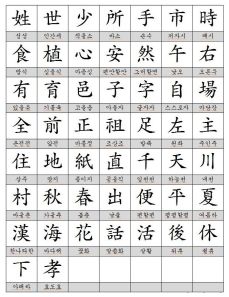 姓 世 少 所 手 市 時
성성 인간세 적을소 바소 손수 저자시 때시
食 植 心 安 然 午 右
밥식 심을식 마음심 편안할안 그러할연 낮오 오른우
有 育 邑 子 字 自 場
있을유 기를육 고을읍 아들자 글자자 스스로자 마당장
全 前 正 祖 足 左 主
온전전 앞전 바를정 조상조 발족 왼좌 주인주
住 地 紙 直 千 天 川
살주 땅지 종이지 곧을직 일천천 하늘천 내천
村 秋 春 出 便 平 夏
마을촌 가을추 봄춘 날출 편할편 평평할평 여름하
漢 海 花 話 活 後 休
한나라한 바다해 꽃화 말씀화 살활 뒤후 쉴휴
下 孝
아래하 효도효